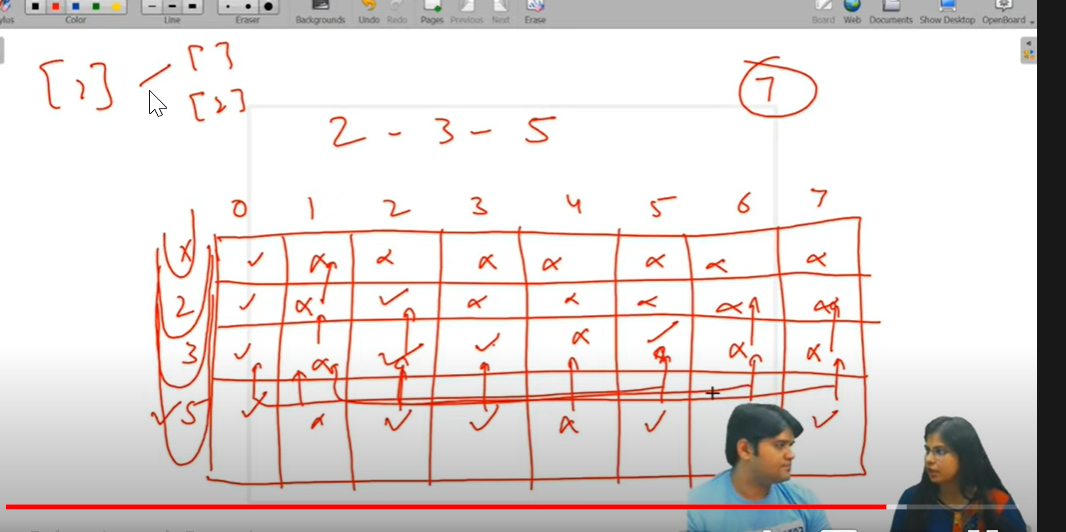 Stylus Color Line Eraser Backgrounds Undo Redo Pages Previous Next Erase Board Web Documents Show Desktop OpenBoard
[ ]
[2]
7
2 - 3 - 5
0 1 2 3 4 5 6 7
x ✓ α α α α α α α
2 ✓ α ✓ α α α α α
3 ✓ α ✓ ✓ α ✓ α α
✓ 5 ✓ α ✓ ✓ α ✓ ✓